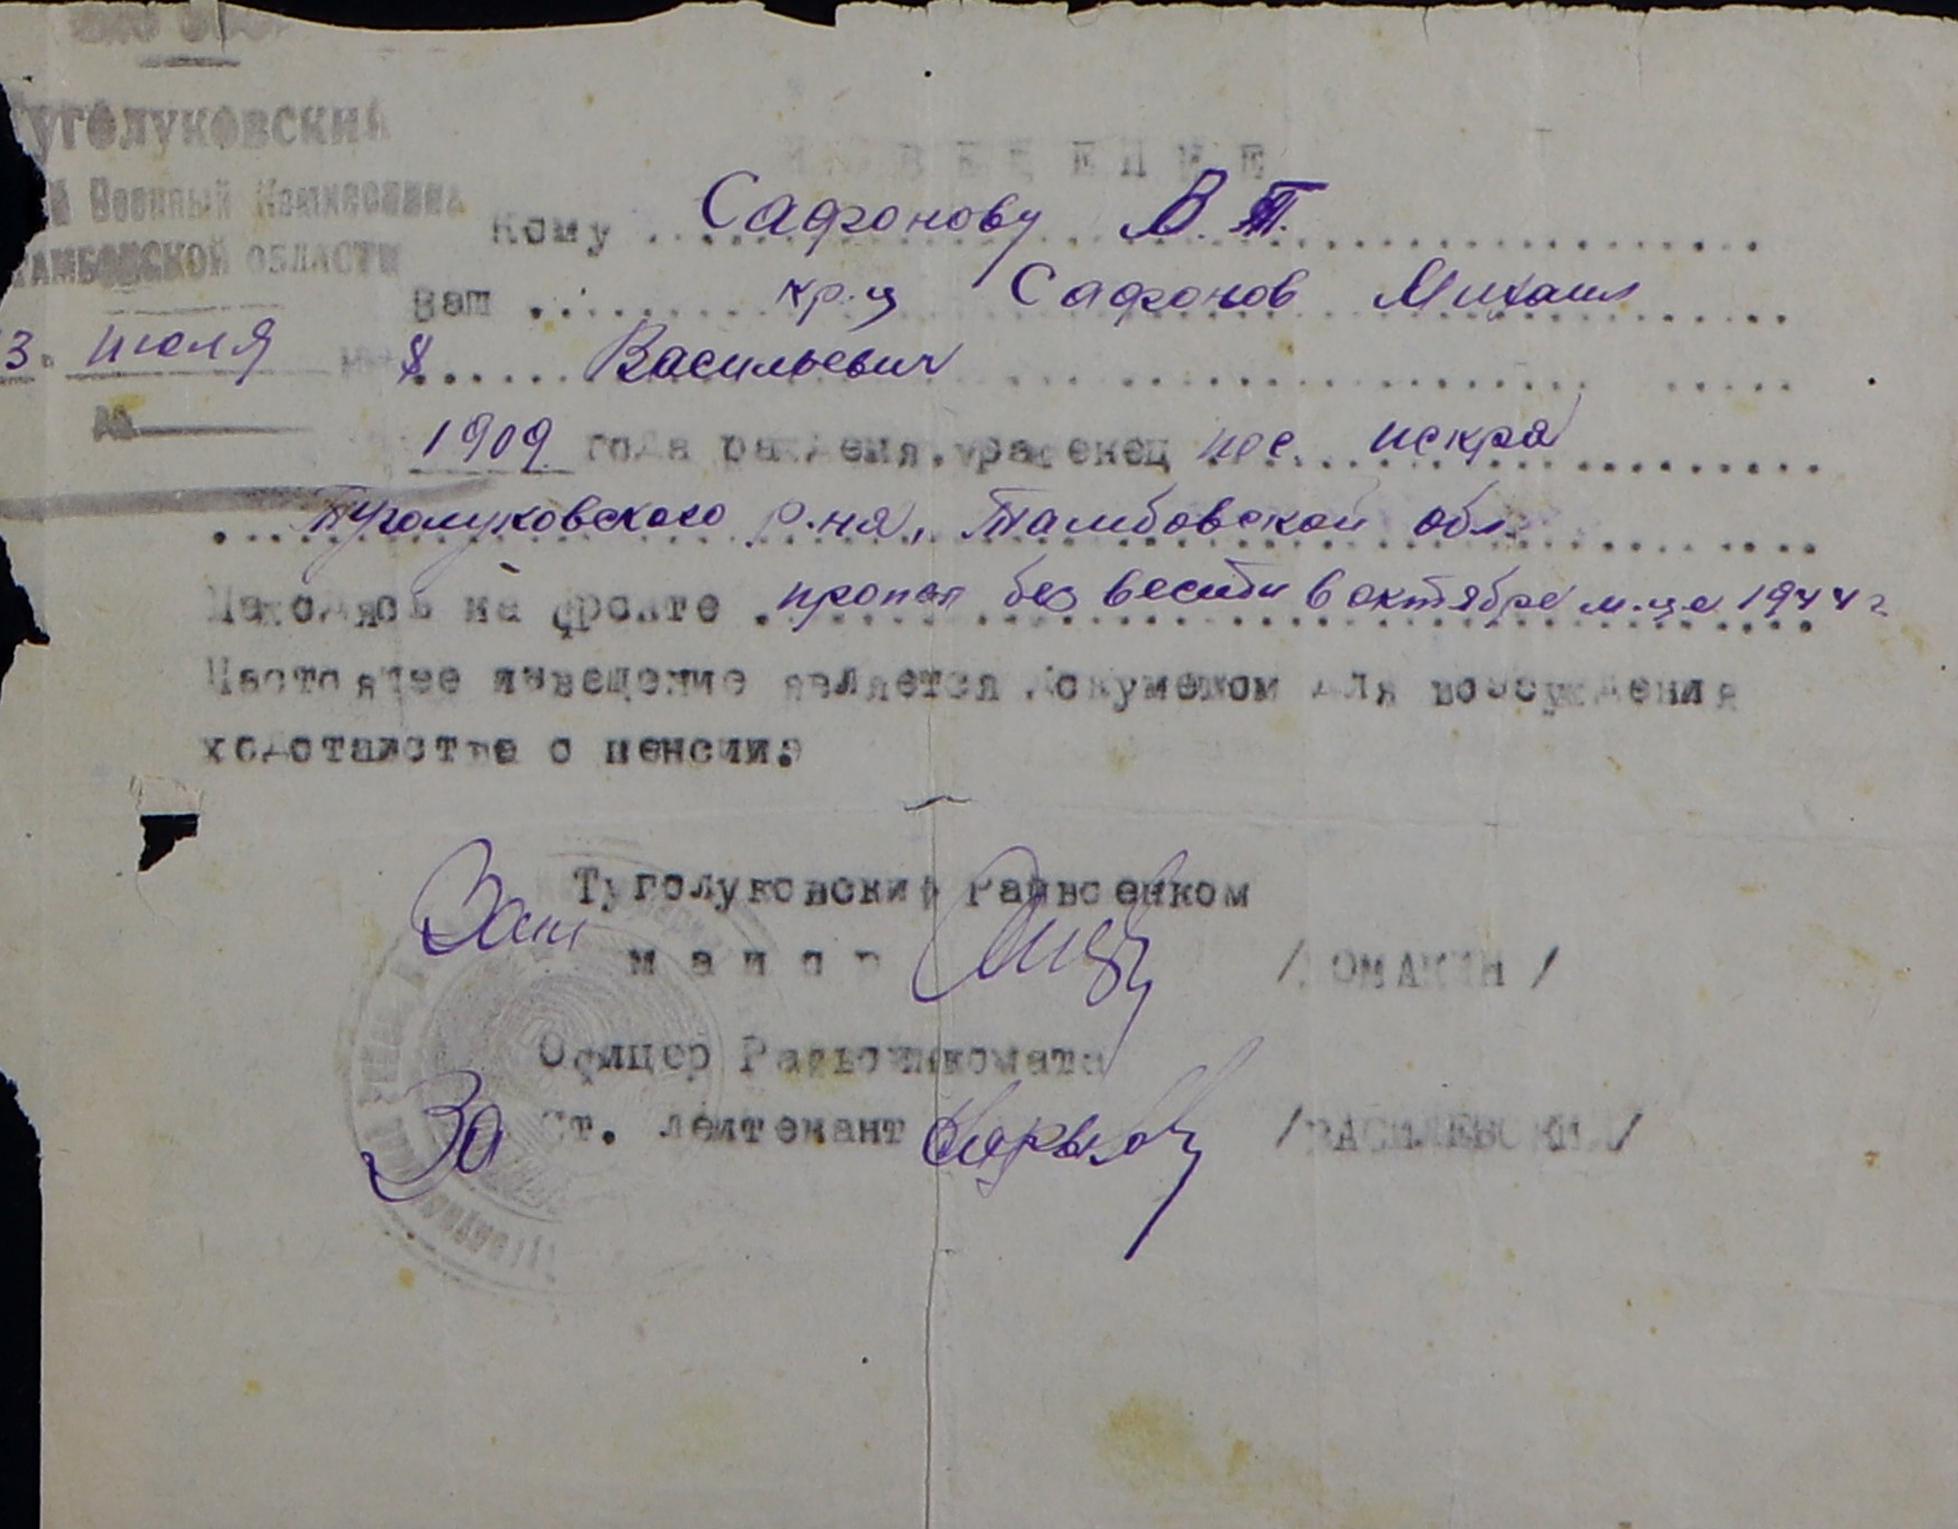 Туголуковский
Военный Комиссариат
ТАМБОВСКОЙ ОБЛАСТИ
3. июля
№
ИЗВЕЩЕНИЕ
Кому Сафонову В. Т.
Ваш кр-ц Сафонов Михаил
Васильевич
1909 года рождения, уроженец пос. Искра
Туголуковского р-на, Тамбовской обл.
Находясь на фронте пропал без вести в октябре м-це 1944 г
Настоящее извещение является документом для возбуждения
ходотайства о пенсии.
Туголуковский Райвоенком
майор /ЛОМАКИН/
Офицер Райвоенкомата
За Ст. лейтенант /ВАСИЛЕВСКИЙ/